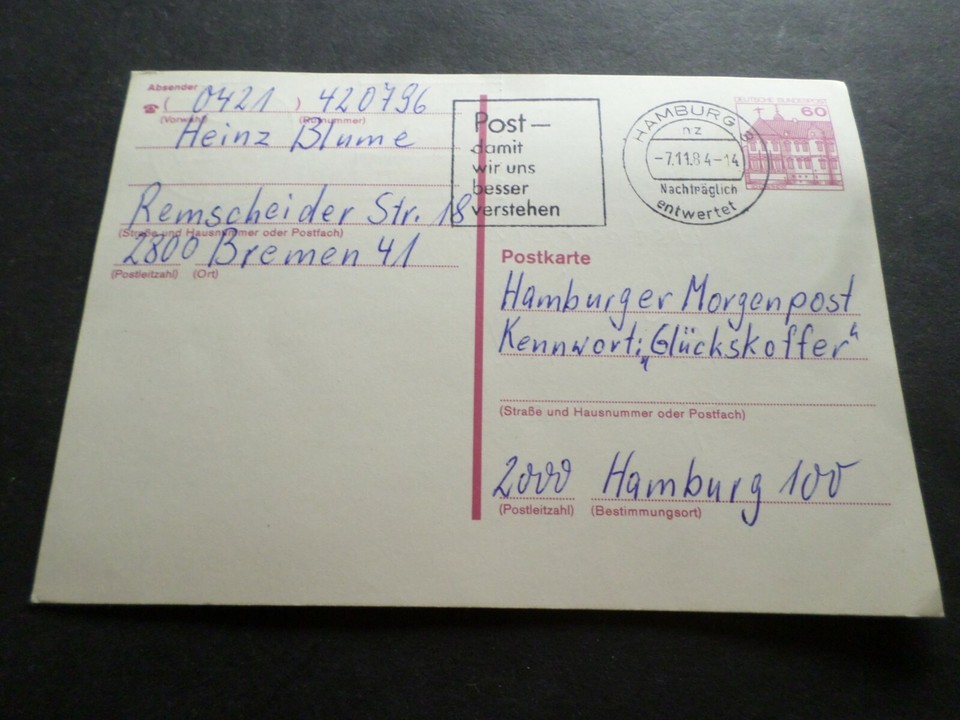 Absender
☎ ( 0421 ) 420796
(Vorwahl) (Rufnummer)
Heinz Blume
Remscheider Str. 18
(Straße und Hausnummer oder Postfach)
2800 Bremen 41
(Postleitzahl) (Ort)
Post–
damit
wir uns
besser
verstehen
HAMBURG
nz
-7.11.84-14
Nachträglich
entwertet
DEUTSCHE BUNDESPOST
60
Postkarte
Hamburger Morgenpost
Kennwort: „Glückskoffer“
(Straße und Hausnummer oder Postfach)
2000 Hamburg 100
(Postleitzahl) (Bestimmungsort)